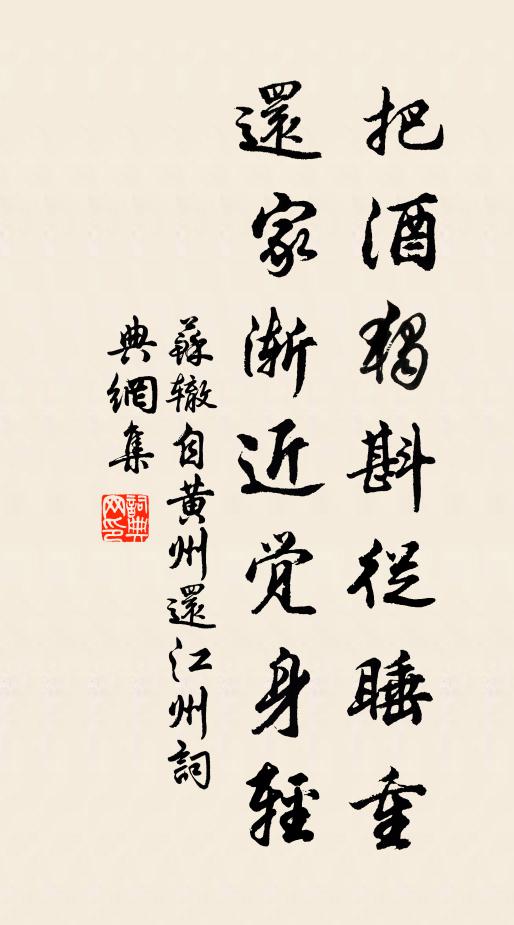 把酒獨斟從睡重
還家漸近覺身輕
蘇轍自黃州還江州詞
典網集
詞典網印